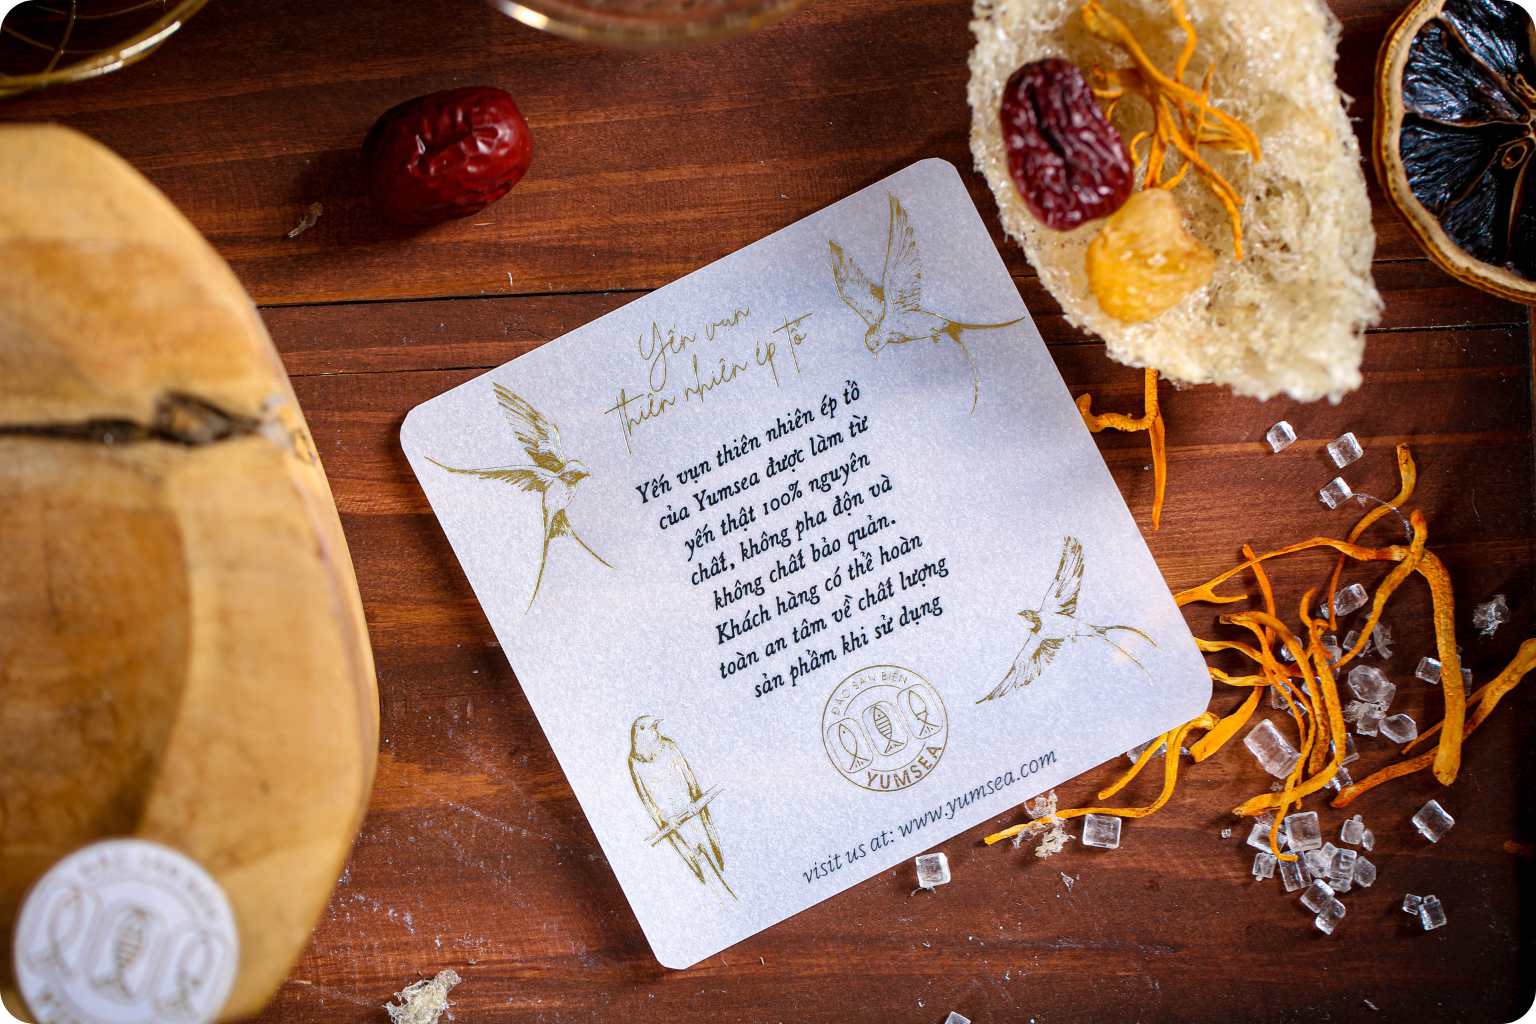 Yến vụn
thiên nhiên ép tổ
Yến vụn thiên nhiên ép tổ
của Yumsea được làm từ
yến thật 100% nguyên
chất, không pha độn và
không chất bảo quản.
Khách hàng có thể hoàn
toàn an tâm về chất lượng
sản phẩm khi sử dụng
ĐẶC SẢN BIỂN
YUMSEA
visit us at: www.yumsea.com
ĐẶC SẢN BIỂN